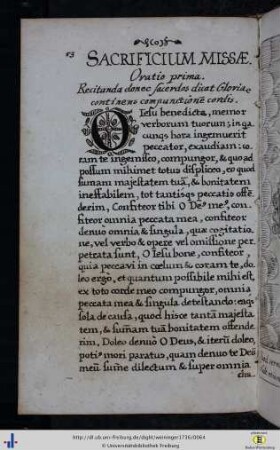 SACRIFICIUM MISSÆ.
Oratio prima.
Recitanda donec sacerdos dicat Gloria,
continens compunctionē cordis.
O Iesu benedicte, memor
verborum tuorum; in qa
cunqȝ hora ingemuerit
peccator, exaudiam: co:
ram te ingemisco, compungor, & quo ad
possum mihimet totus displiceo, eo quod
sumam majestatem tuā, & bonitatem
ineffabilem, tot tantisqȝ peccatis offē
derim, Confiteor tibi O Deȝ meȝ, con,
fiteor omnia peccata mea, confiteor
denuo omnia & singula, quæ cogitatio
ne, vel verbo & opere vel omissione per
petrata sunt, O Iesu bone, confiteor,
quia peccavi in cœlum & coram te, do:
leo ergo, et quantum possibile mihi est
ex toto corde meo compungor, omnia
peccata mea & singula detestando: eaqȝ
sola de causa, quod hisce tantā majesta
tem, & sumam tuā bonitatem offende
rim, Doleo denuo O Deus, & iterū doleo,
potiȝ mori paratus, quam denuo te Deū
meū sume dilectum & super omnia
http://dl.ub.uni-freiburg.de/diglit/weninger1736/0064
© Universitätsbibliothek Freiburg